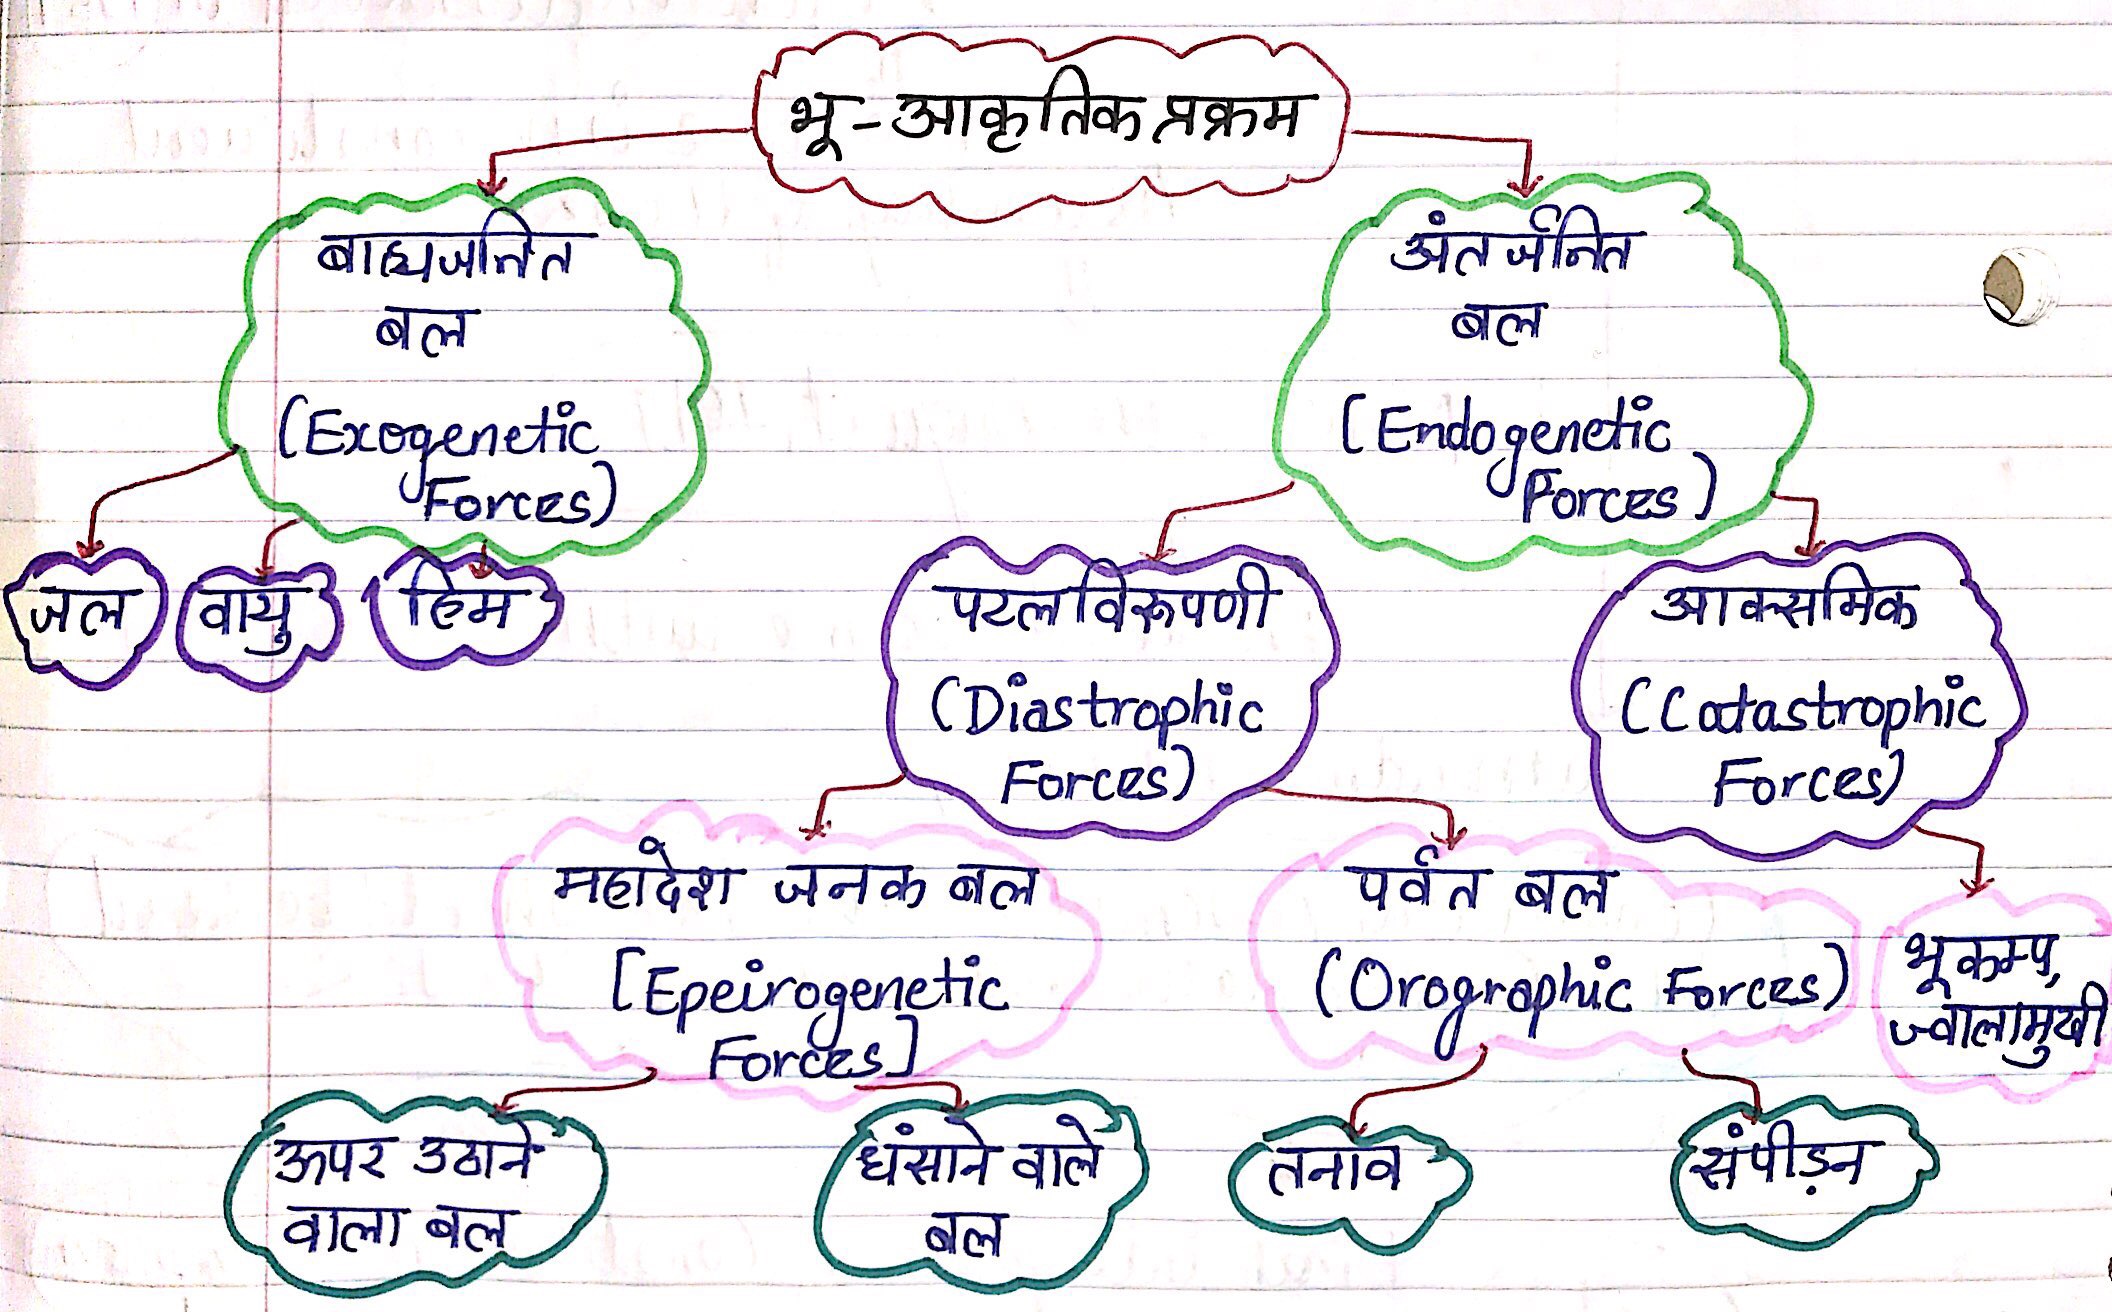 भू-आकृतिक प्रक्रम
बाह्यजनित
बल
(Exogenetic
Forces)
अंतर्जनित
बल
(Endogenetic
Forces)
जल
वायु
हिम
पटलविरूपणी
(Diastrophic
Forces)
आक्समिक
(Catastrophic
Forces)
महादेश जनक बल
[Epeirogenetic
Forces]
पर्वत बल
(Orographic Forces)
भूकम्प,
ज्वालामुखी
ऊपर उठाने
वाला बल
धंसाने वाले
बल
तनाव
संपीड़न